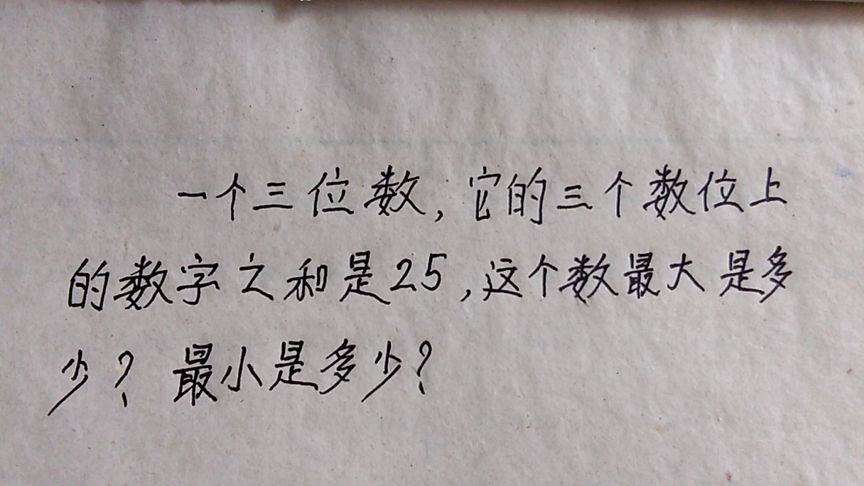 一个三位数,它的三个数位上
的数字之和是25,这个数最大是多
少?最小是多少?